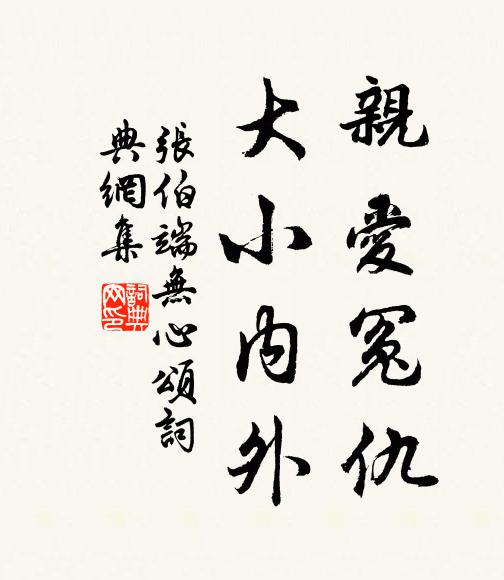 親愛冤仇
大小内外
張伯端無心頌詞
典網集
詞典網印